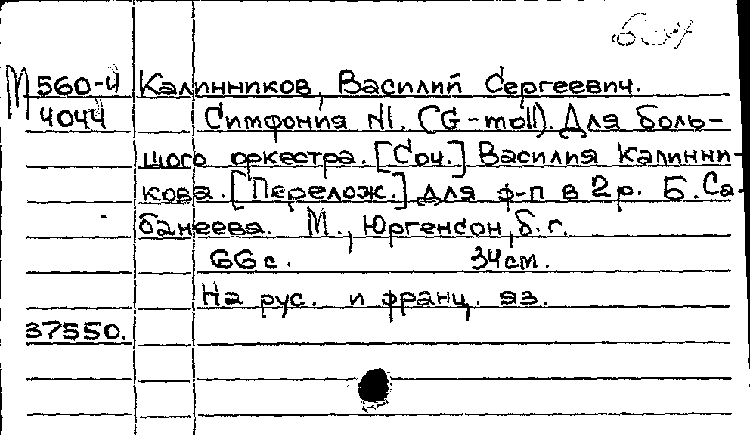 М 560-4 Калинников, Василий Сергеевич.
4044 Симфония №1. (G-moll). Для боль-
шого оркестра. [Соч.] Василия Калинни-
кова. [Перелож.] для ф-п в 2 р. Б. Са-
банеева. М., Юргенсон, б. г.
66 с. 34 см.
На рус. и франц. яз.
37550.